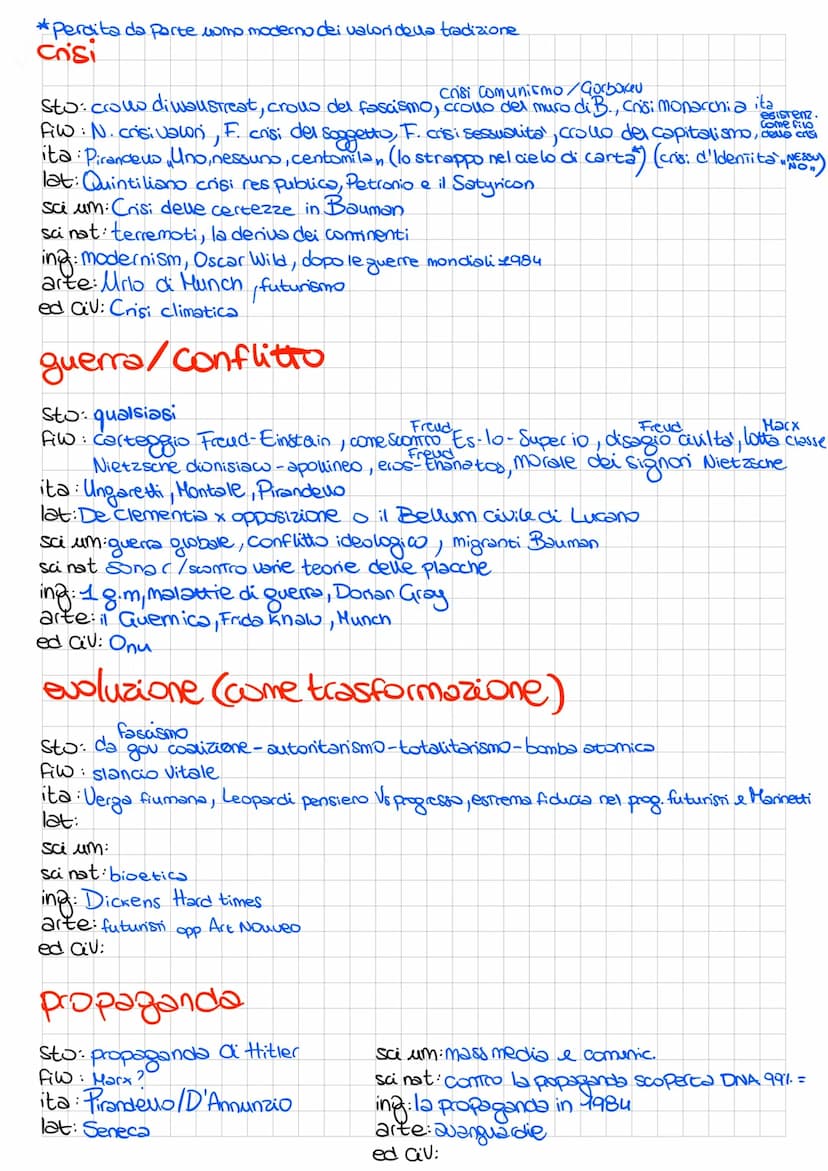 *Perdita da parte uomo moderno dei valori della tradizione
Crisi
crisi comunismo/Gorbaciov
sto: crollo di wallstreat, crollo del fascismo, crollo del muro di B., crisi monarchia ita
filo: N. crisi valori, F. crisi del soggetto, F. crisi sessualità, crollo del capitalismo, esistenz. come filo della crisi
ita: Pirandello „Uno, nessuno, centomila„ (lo strappo nel cielo di carta*) (crisi d'Identità „NESSUNO„)
lat: Quintiliano crisi res publica, Petronio e il Satyricon
sci um: Crisi delle certezze in Bauman
sci nat: terremoti, la deriva dei continenti
ing: modernism, Oscar Wild, dopo le guerre mondiali 1984
arte: Urlo di Munch, futurismo
ed civ: Crisi climatica
guerra/conflitto
sto: qualsiasi
filo: carteggio Freud-Einstain, come scontro Freud Es-Io-Super io, disagio civiltà Freud, lotta classe Marx
Nietzsche dionisiaco-apollineo, eros-thanatos Freud, morale dei signori Nietzsche
ita: Ungaretti, Montale, Pirandello
lat: De Clementia x opposizione o il Bellum civile di Lucano
sci um: guerra globale, conflitto ideologico, migranti Bauman
sci nat sonar/scontro varie teorie delle placche
ing: 1 g.m, malattie di guerra, Dorian Gray
arte: il Guernica, Frida Khalo, Munch
ed civ: Onu
evoluzione (come trasformazione)
fascismo
sto: da gov coalizione-autoritarismo-totalitarismo-bomba atomica
filo: slancio vitale
ita: Verga fiumana, Leopardi pensiero Vs progresso, estrema fiducia nel prog. futuristi e Marinetti
lat:
sci um:
sci nat: bioetica
ing: Dickens Hard times
arte: futuristi opp Art Nouveo
ed civ:
propaganda
sto: propaganda di Hitler
filo: Marx?
ita: Pirandello/D'Annunzio
lat: Seneca
sci um: mass media e comunic.
sci nat: contro la propaganda scoperta DNA 99% =
ing: la propaganda in 1984
arte: avanguardie
ed civ: